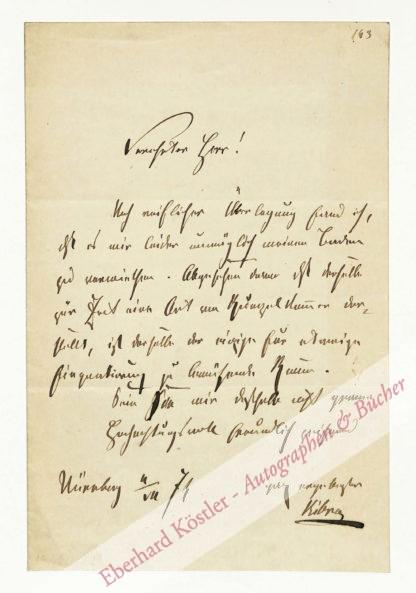 163
Verehrter Herr!
Nach reiflicher Überlegung fand ich,
daß es mir leider unmöglich meinen Laden
zu vermiethen. Abgesehen davon daß derselbe
zur Zeit eine Art von Rumpelkammer dar-
stellt, ist derselbe der einzige für etwaige
zu brauchende Raum.
Sein Sie mir deshalb nicht gram
Hochachtungsvoll freundlich
Nürnberg 4/VII 74
ergebenster
Eberhard Köstler - Autographen & Bücher